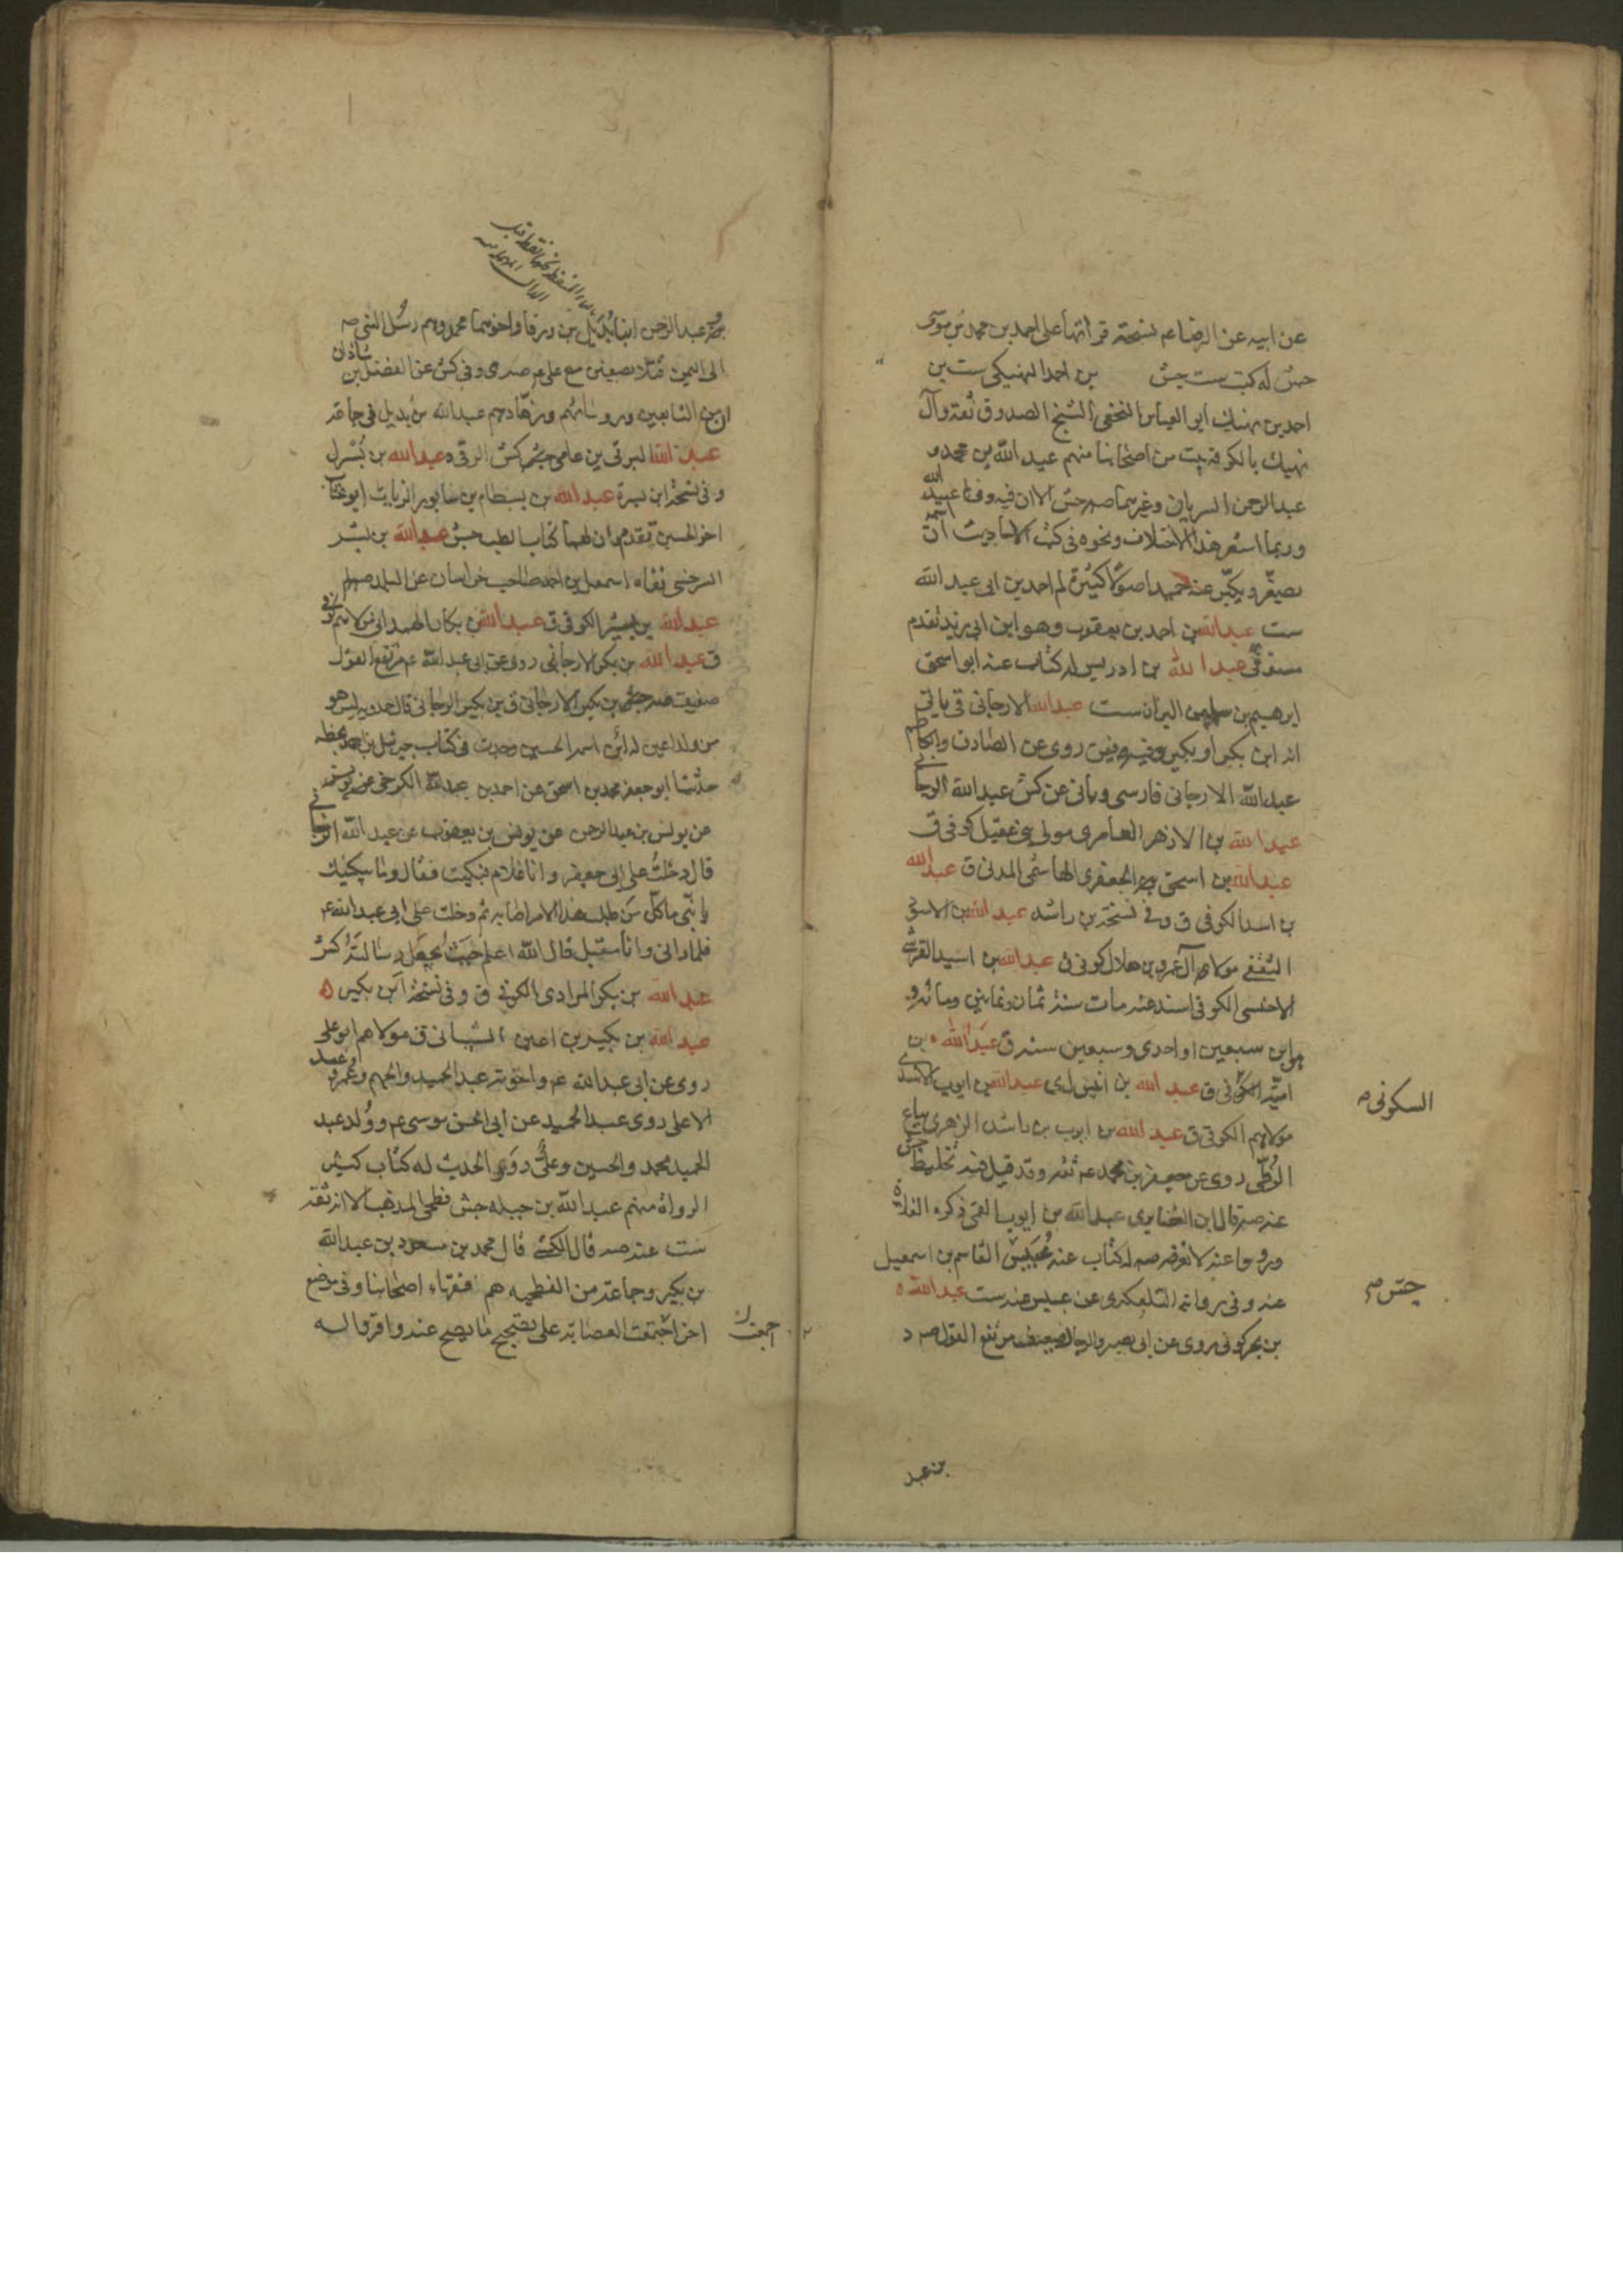 عن ابيه عن الرضا عم نسخته قرأتها على احمد بن محمد بن موسى
جش له كتب ست جش بن احمد النهيكي ست بن
احمد بن نهيك ابو العباس النخعي الشيخ الصدوق ثقة وآل
نهيك بالكوفة بيت من اصحابنا منهم عبد الله بن محمد و
عبد الرحمن السريان وغيرهما صه جش الا ان فيه وفي عبيد الله
وربما اشعر هذا الاختلاف ونحوه في كتب الاحاديث ان اسمه
يصغر ويكبر عنه حميد اصولا كثيرة لم احمد بن ابي عبد الله
ست عبد الله بن احمد بن يعقوب وهو ابن ابي زيد تقدم
عبد الله بن ادريس له كتاب عنه ابو اسحق
ابرهيم بن سليمن البزان ست عبد الله الارجاني ق ياتي
انه ابن بكر او بكير روى عن الصادق والكاظم
عبد الله الارجاني فارسي وياتي عن كش عبد الله الرجاني
عبد الله بن الازهر العامري مولى بني عقيل كوفي ق
عبد الله بن اسحق الجعفري الهاشمي المدني ق عبد الله
بن اسد الكوفي ق وفي نسخة بن راشد عبد الله بن الاسود
الثقفي مولاى آل عمرو بن هلال كوفي ق عبد الله بن اسيد القرشي
الاخنسي الكوفي اسند عنه مات سنة ثمان وثمانين ومائة و
هو ابن سبعين او احدى وسبعين سنة ق عبد الله بن
امية الكوفي ق عبد الله بن انيس ل ى عبد الله بن ايوب الاسدي
السكوني صه
مولاهم الكوفي ق عبد الله بن ايوب بن راشد الزهري بياع
الزطي روى عن جعفر بن محمد عم ثقة وقد قيل فيه تخليط جش
عنه صه قال ابن الغضايري عبد الله بن ايوب القمي ذكره الغلاة
ورووا عنه لا نعرفه صه له كتاب عنه عبيس القاسم بن اسمعيل
عنه وفي رواية التلعكبري عن عبيس عنه ست عبد الله
جش م
بن بحر كوفي روى عن ابي بصير والرجال ضعيف مرتفع القول صه د
بن عبد
عبد الرحمن ابنا بديل بن ورقا واخوهما محمد وهم رسل النبي صه
الى اليمن قتلا بصفين مع علي عم صه ى وفي كش عن الفضل بن شاذان
ان من التابعين ورؤسائهم وزهادهم عبد الله بن بديل في جماعة
عبد الله البرقي بن عامي جش كش الرقي عبد الله بن بسر ل
وفي نسخة ابن بسرة عبد الله بن بسطام بن سابور الزيات ابو عتاب
اخو الحسين تقدم ان لهما كتاب الطب جش عبد الله بن بشر
السرخسي نفاه اسمعيل بن احمد صاحب خراسان عن البلد صه لم
عبد الله بن بشير الكوفي ق عبد الله بن بكار الهمداني مولاهم كوفي
ق عبد الله بن بكر الارجاني روى عن ابي عبد الله عم مرتفع القول
ضعيف صه جش بن بكير الارجاني ق بن بكير الرجاني قال حمدويه ليس هو
من ولد اعين له ابن اسمه الحسين وجدت في كتاب جبرئيل بن احمد بخطه
حدثنا ابو جعفر محمد بن اسحق عن احمد بن عبد الله الكرخي عن يونس
عن يونس بن عبد الرحمن عن يونس بن يعقوب عن عبد الله الرجاني
قال دخلت على ابي جعفر وانا غلام فبكيت فقال وما يبكيك
يا بني ما كل من طلب هذا الامر اصابه ثم دخلت على ابي عبد الله عم
فلما راني وانا مقبل قال الله اعلم حيث يجعل رسالته كش
عبد الله بن بكر المرادي الكوفي ق وفي نسخة ابن بكير
عبد الله بن بكير بن اعين الشيباني ق مولاهم ابو علي
روى عن ابي عبد الله عم واخوته عبد الحميد والجهم وعمرو وعبد
الاعلى روى عبد الحميد عن ابي الحسن موسى عم وولد عبد
الحميد محمد والحسين وعلي روى الحديث له كتاب كثير
الرواة منهم عبد الله بن جبلة جش فطحي المذهب الا انه ثقة
ست عنه صه قال الكشي قال محمد بن مسعود بن عبد الله
بن بكير وجماعة من الفطحية هم فقهاء اصحابنا وفي موضع
اخر اجتمعت العصابة على تصحيح ما يصح عنه واقروا له
اجمعت